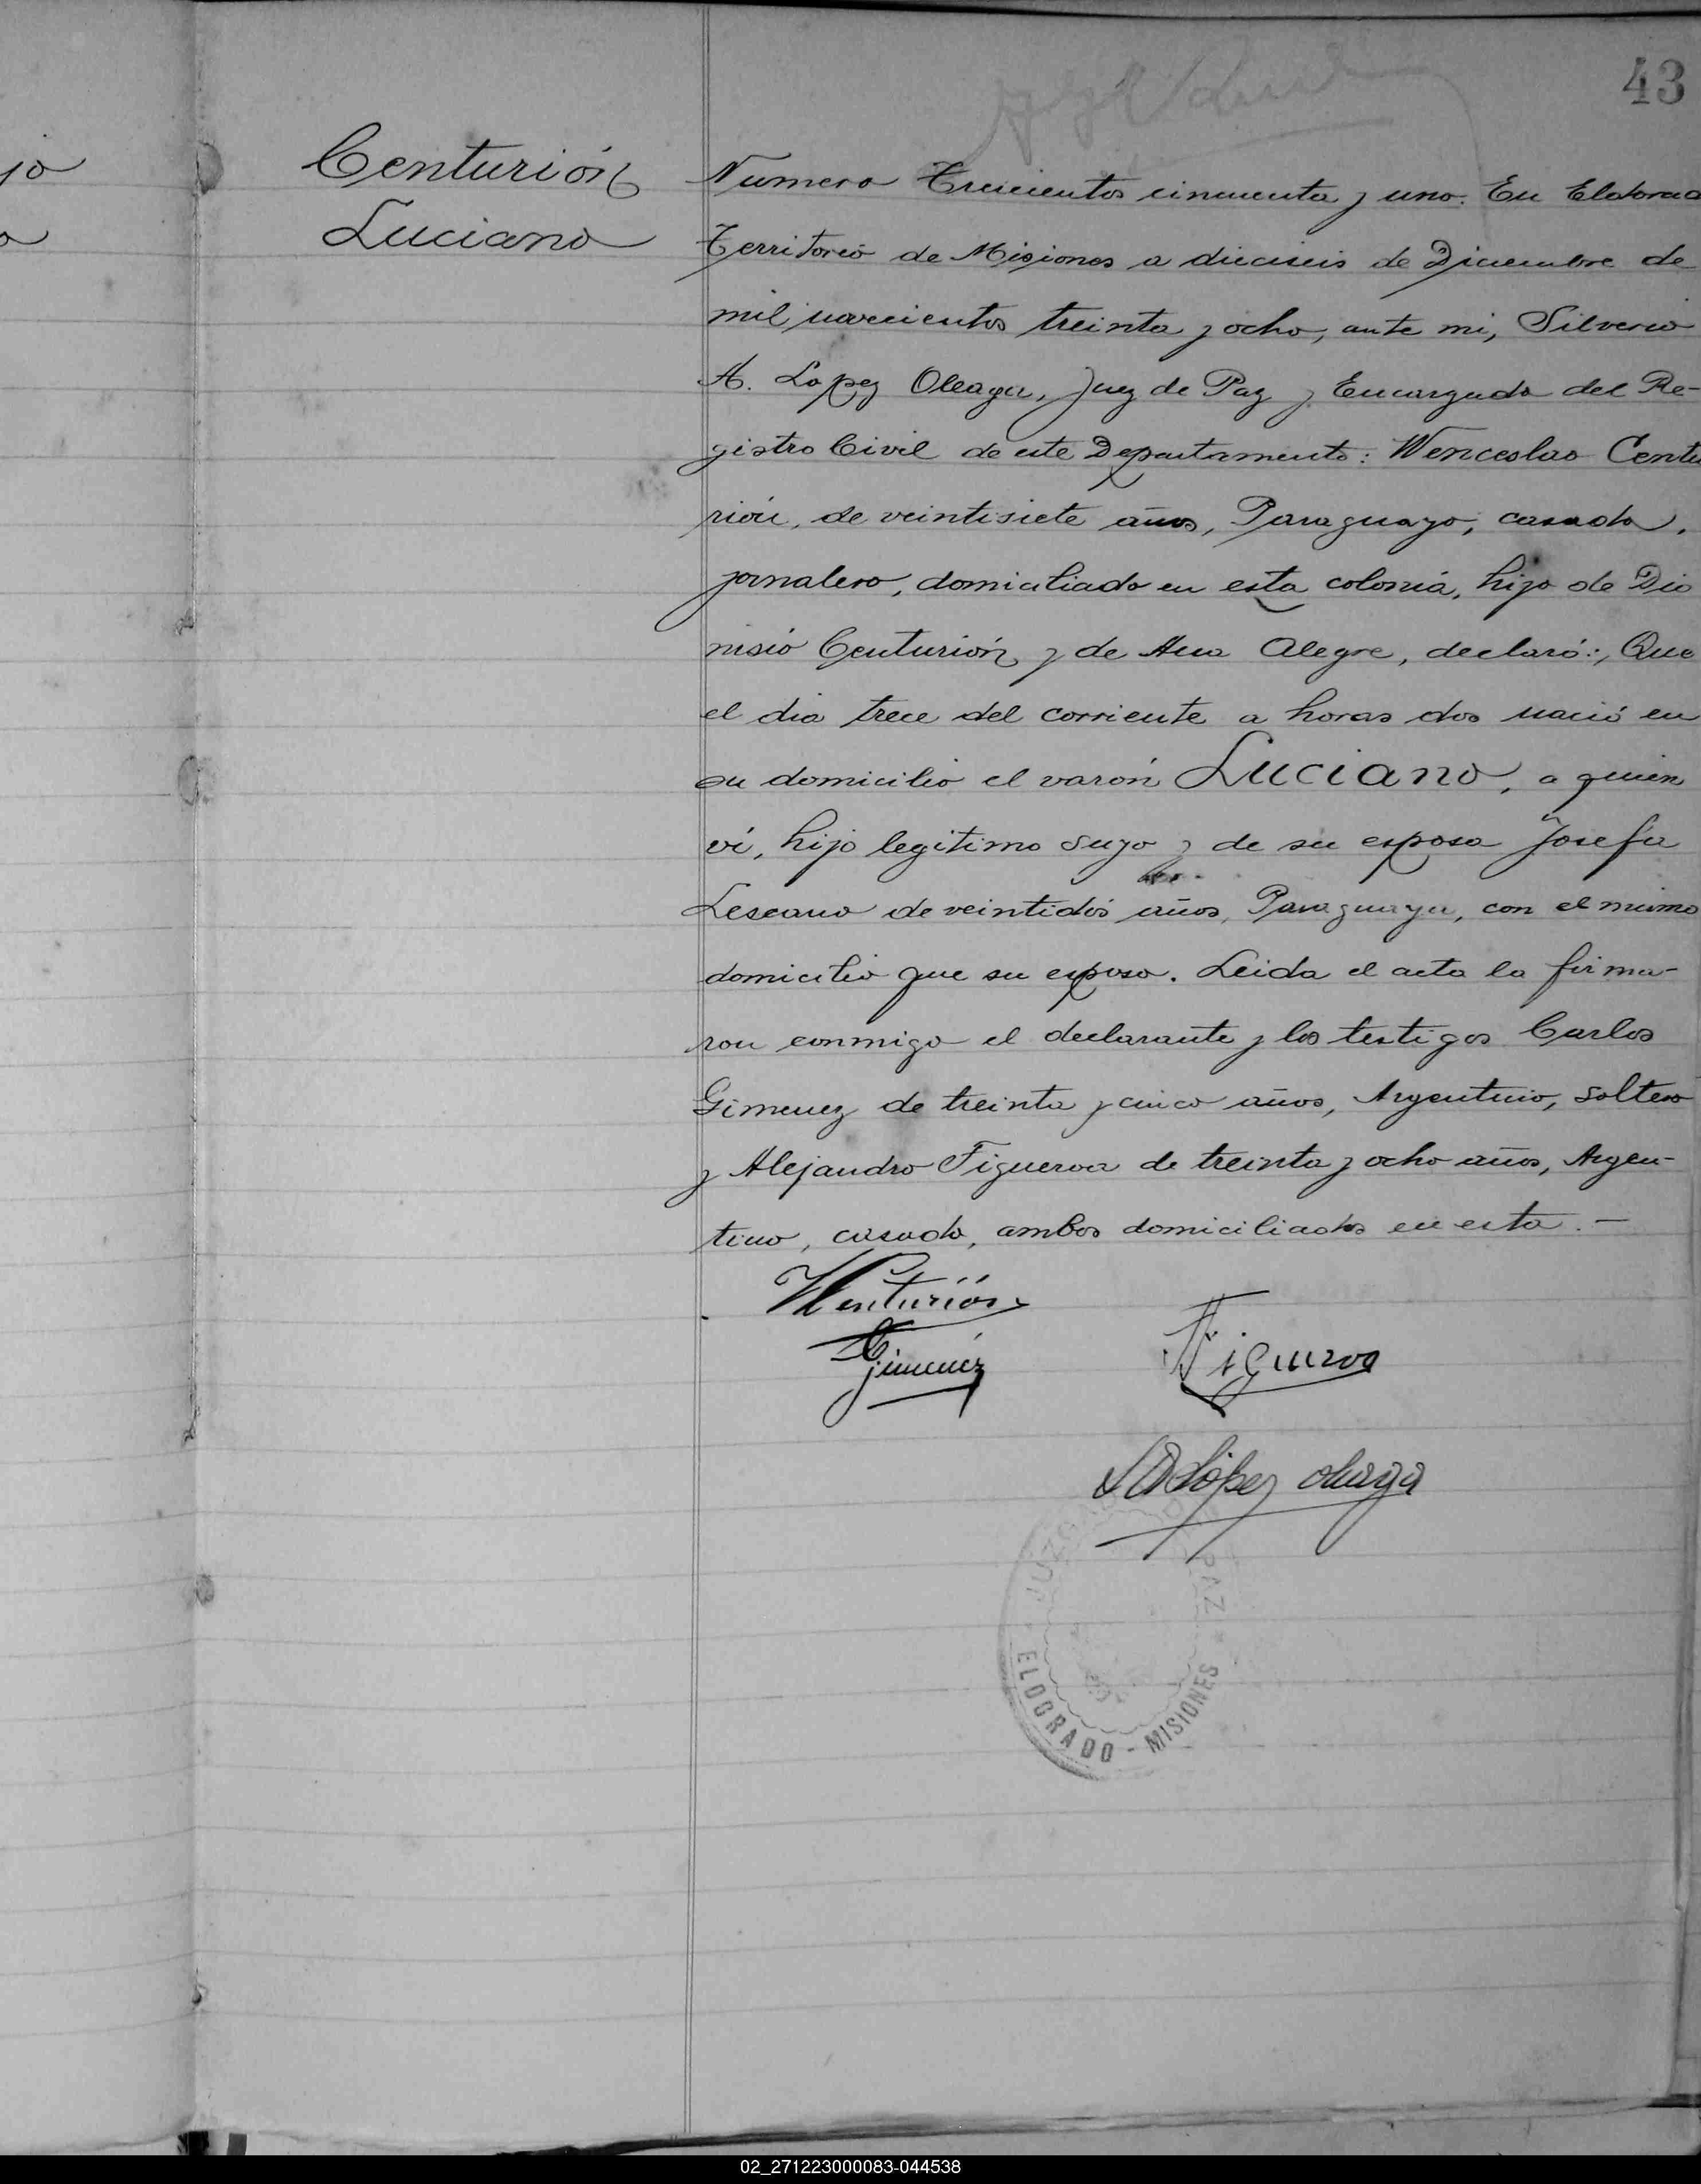 43
Centurión
Luciano
Numero Trescientos cincuenta y uno. En Eldorado
Territorio de Misiones a dieciseis de Diciembre de
mil novecientos treinta y ocho, ante mi, Silverio
A. Lopez Oleaga, Juez de Paz y Encargado del Re-
gistro Civil de este Departamento: Wenceslao Centu
rión, de veintisiete años, Paraguayo, casado,
jornalero, domiciliado en esta colonia, hijo de Dio
nisio Centurión y de Ana Alegre, declaró:, Que
el dia trece del corriente a horas dos nació en
su domicilio el varón Luciano, a quien
ví, hijo legitimo suyo y de su esposa Josefa
Lescano de veintidós años, Paraguaya, con el mismo
domicilio que su esposo. Leida el acta la firma-
ron conmigo el declarante y los testigos Carlos
Gimenez de treinta y cinco años, Argentino, soltero
y Alejandro Figueroa de treinta y ocho años, Argen-
tino, casado, ambos domiciliados en esta. -
WCenturión
CGimenez
AFigueroa
SALópez Oleaga
JUZGADO DE PAZ
ELDORADO - MISIONES
02_271223000083-044538